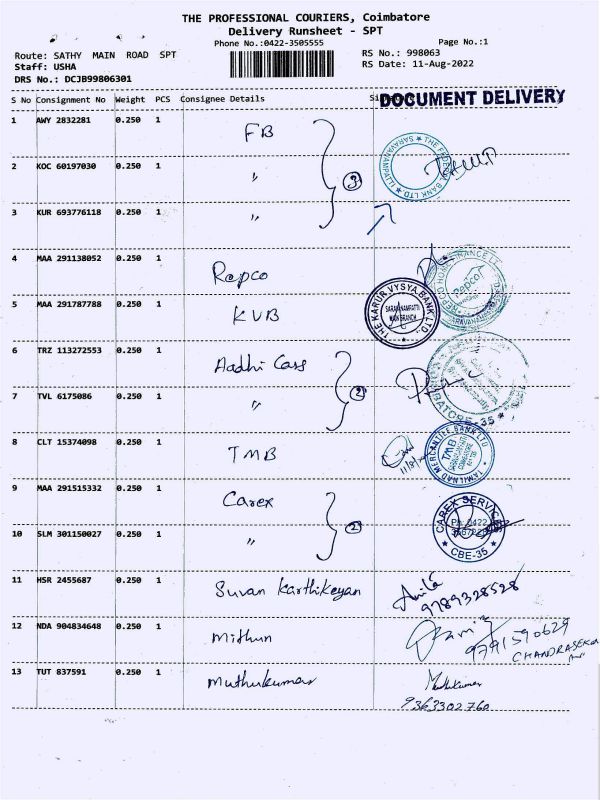 THE PROFESSIONAL COURIERS, Coimbatore
Delivery Runsheet - SPT
Phone No.:0422-3505555
Page No.:1
Route: SATHY MAIN ROAD SPT
RS No.: 998063
Staff: USHA
RS Date: 11-Aug-2022
DRS No.: DCJB99806301
S No Consignment No Weight PCS Consignee Details
DOCUMENT DELIVERY
1 AWY 2832281 0.250 1 FB
2 KOC 60197030 0.250 1 "
3
THE FEDERAL BANK LTD
3 KUR 693776118 0.250 1 "
4 MAA 291138052 0.250 1 Repco
Repco
5 MAA 291787788 0.250 1 KVB
THE KARUR VYSYA BANK LTD.,
SARAVANAMPATTI
MAIN BRANCH
6 TRZ 113272553 0.250 1 Aadhi Cars
7 TVL 6175086 0.250 1 "
2
8 CLT 15374098 0.250 1 TMB
TAMILNAD MERCANTILE BANK LTD
TMB
9 MAA 291515332 0.250 1 Carex
10 SLM 301150027 0.250 1 "
2
CAREX SERVICE
CBE-35
11 HSR 2455687 0.250 1 Suvan Karthikeyan
Anila
9789328528
12 NDA 904834648 0.250 1 Mithun
9791590629
13 TUT 837591 0.250 1 Muthukumar
Muthukumar
9363302760